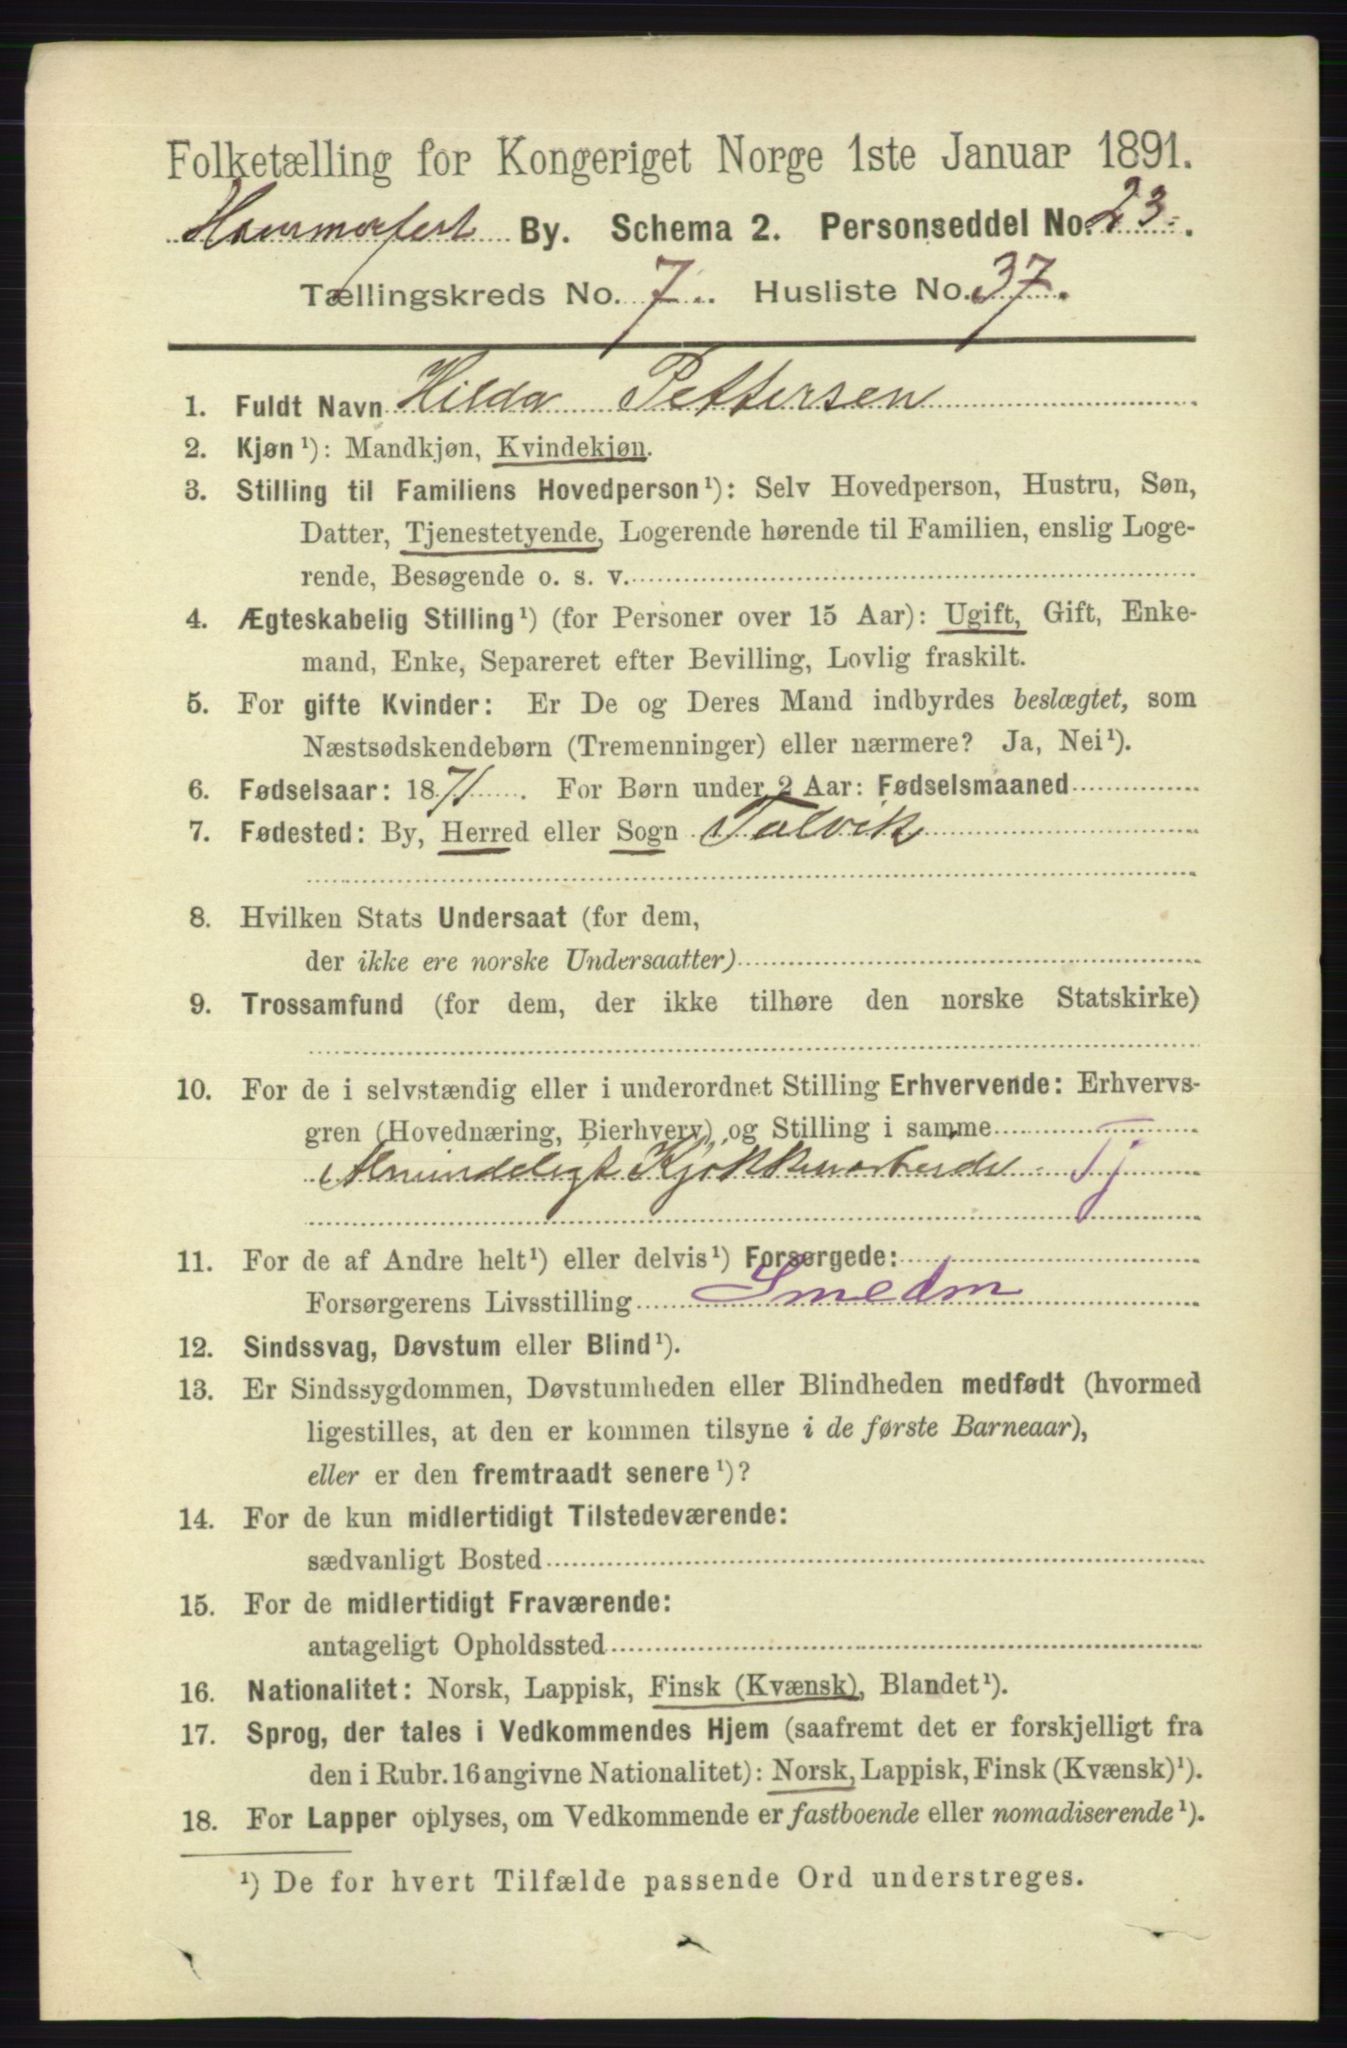 Folketælling for Kongeriget Norge 1ste Januar 1891.
Hammerfest By. Schema 2. Personseddel No. 23.
Tællingskreds No. 7. Husliste No. 37.
1. Fuldt Navn Hilda Pettersen
2. Kjøn¹): Mandkjøn, Kvindekjøn.
3. Stilling til Familiens Hovedperson¹): Selv Hovedperson, Hustru, Søn,
Datter, Tjenestetyende, Logerende hørende til Familien, enslig Loge-
rende, Besøgende o. s. v.
4. Ægteskabelig Stilling¹) (for Personer over 15 Aar): Ugift, Gift, Enke-
mand, Enke, Separeret efter Bevilling, Lovlig fraskilt.
5. For gifte Kvinder: Er De og Deres Mand indbyrdes beslægtet, som
Næstsødskendebørn (Tremenninger) eller nærmere? Ja, Nei¹).
6. Fødselsaar: 1871. For Børn under 2 Aar: Fødselsmaaned
7. Fødested: By, Herred eller Sogn Talvik
8. Hvilken Stats Undersaat (for dem,
der ikke ere norske Undersaatter)
9. Trossamfund (for dem, der ikke tilhøre den norske Statskirke)
10. For de i selvstændig eller i underordnet Stilling Erhvervende: Erhvervs-
gren (Hovednæring, Bierhverv) og Stilling i samme
Almindeligt Kjøkkenarbeide - Tj
11. For de af Andre helt¹) eller delvis¹) Forsørgede:
Forsørgerens Livsstilling Smedm
12. Sindssvag, Døvstum eller Blind¹).
13. Er Sindssygdommen, Døvstumheden eller Blindheden medfødt (hvormed
ligestilles, at den er kommen tilsyne i de første Barneaar),
eller er den fremtraadt senere¹)?
14. For de kun midlertidigt Tilstedeværende:
sædvanligt Bosted
15. For de midlertidigt Fraværende:
antageligt Opholdssted
16. Nationalitet: Norsk, Lappisk, Finsk (Kvænsk), Blandet¹).
17. Sprog, der tales i Vedkommendes Hjem (saafremt det er forskjelligt fra
den i Rubr. 16 angivne Nationalitet): Norsk, Lappisk, Finsk (Kvænsk)¹).
18. For Lapper oplyses, om Vedkommende er fastboende eller nomadiserende¹).
¹) De for hvert Tilfælde passende Ord understreges.